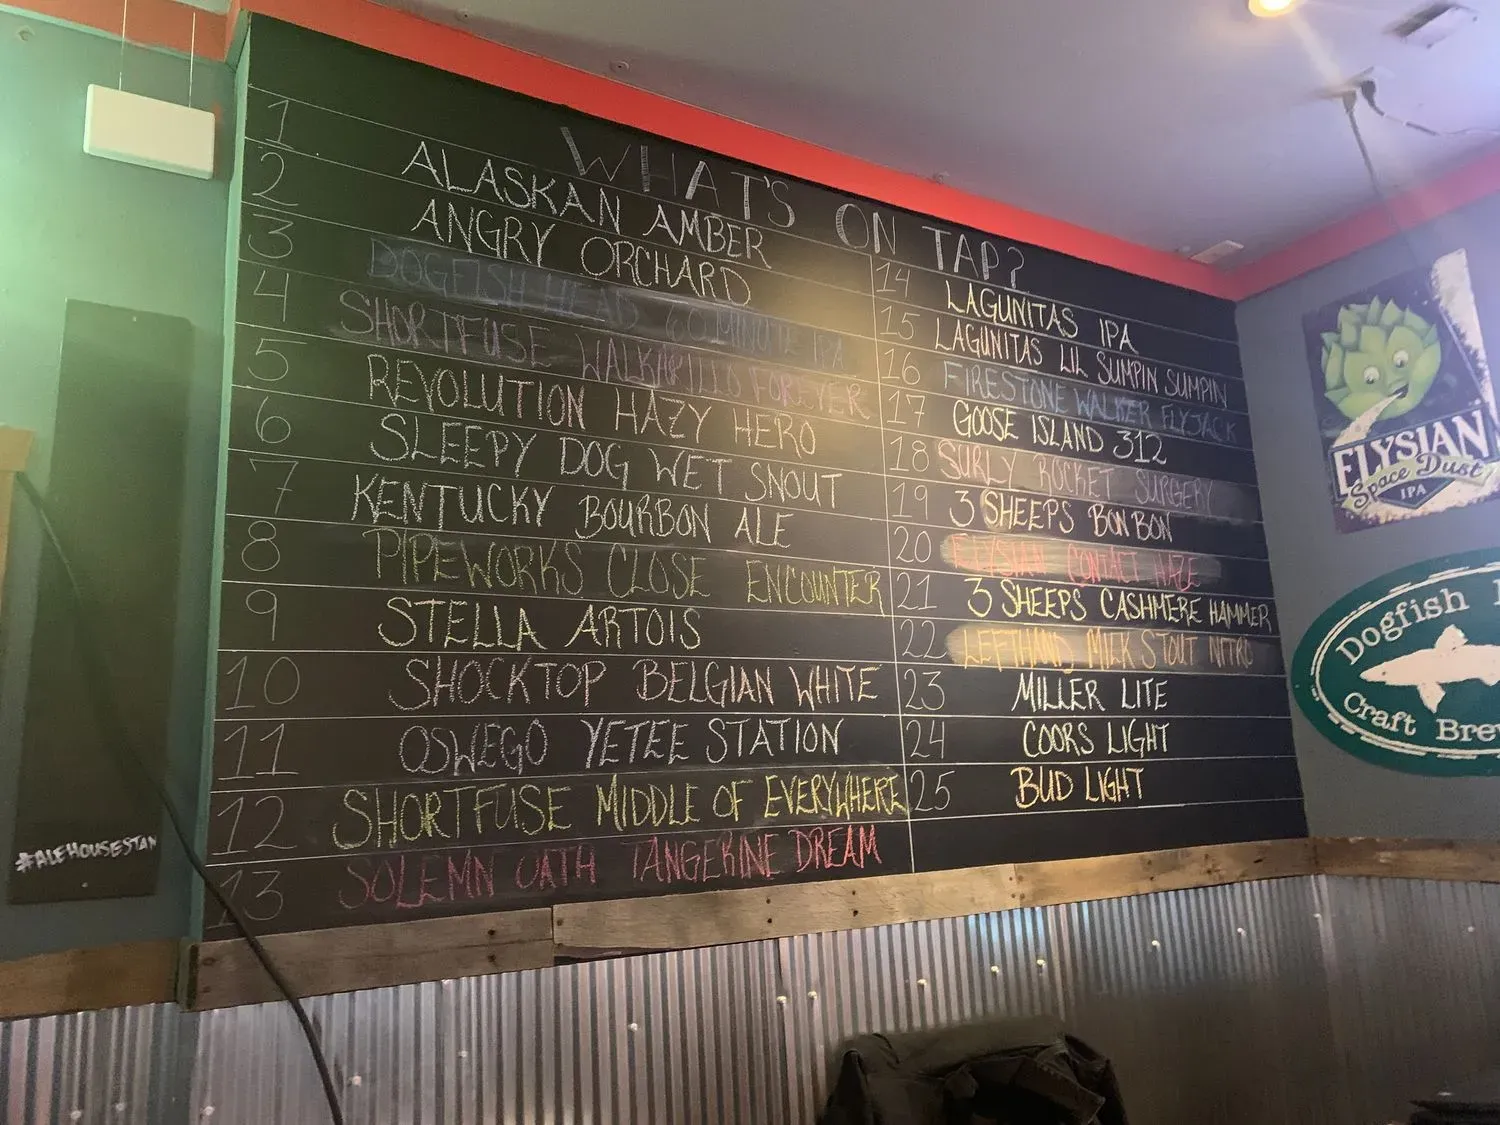 WHAT'S ON TAP?
1 ALASKAN AMBER
2 ANGRY ORCHARD
3 DOGFISH HEAD 60 MINUTE IPA
4 SHORTFUSE WALKAPILLO FOREVER
5 REVOLUTION HAZY HERO
6 SLEEPY DOG WET SNOUT
7 KENTUCKY BOURBON ALE
8 PIPEWORKS CLOSE ENCOUNTER
9 STELLA ARTOIS
10 SHOCKTOP BELGIAN WHITE
11 OSWEGO YETEE STATION
12 SHORTFUSE MIDDLE OF EVERYWHERE
13 SOLEMN OATH TANGERINE DREAM
14 LAGUNITAS IPA
15 LAGUNITAS LIL SUMPIN SUMPIN
16 FIRESTONE WALKER FLYJACK
17 GOOSE ISLAND 312
18 SURLY ROCKET SURGERY
19 3 SHEEPS BON BON
20 ELYSIAN CONTACT HAZE
21 3 SHEEPS CASHMERE HAMMER
22 LEFTHAND MILK STOUT NITRO
23 MILLER LITE
24 COORS LIGHT
25 BUD LIGHT
#ALEHOUSESTAN
ELYSIAN
Space Dust
IPA
Dogfish
Craft Brew